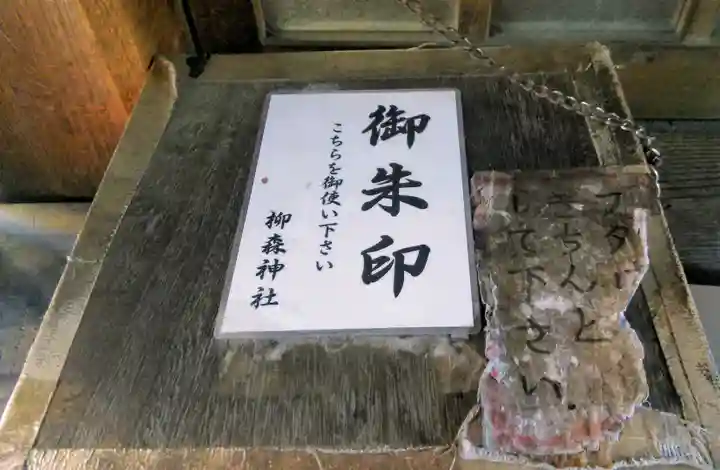 御朱印
こちらを御使い下さい
柳森神社
フタ
きちんと
して下さい